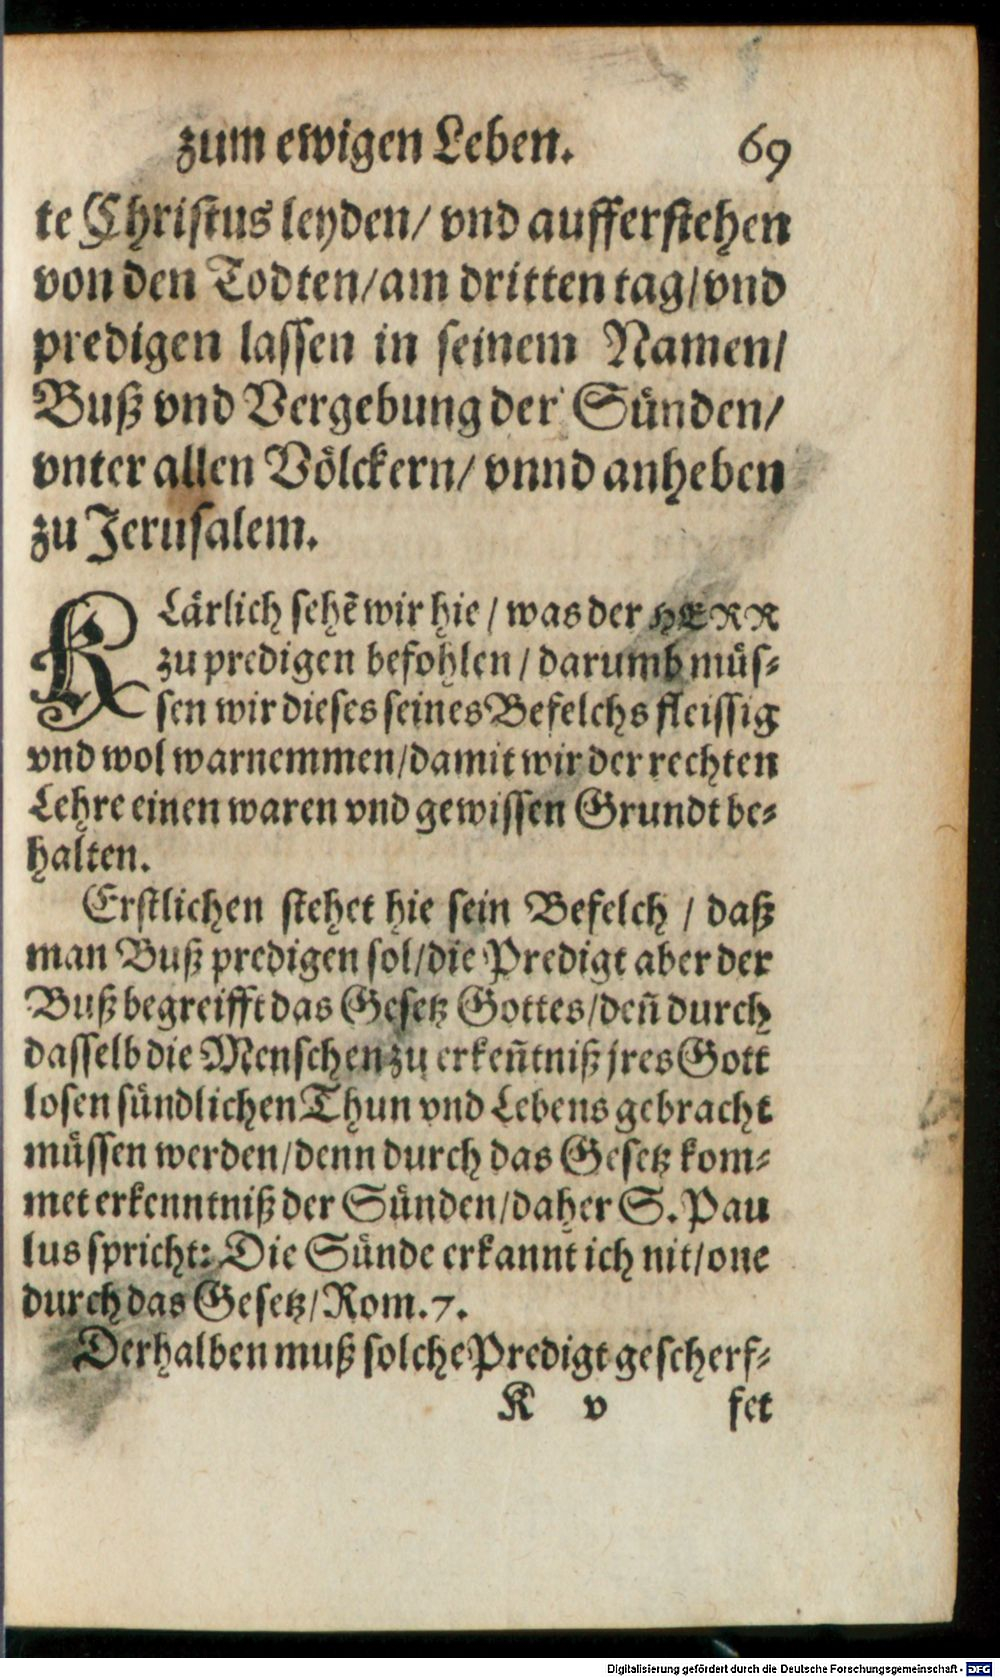 zum ewigen Leben. 69
te Christus leyden/ vnd aufferstehen
von den Todten/am dritten tag/vnd
predigen lassen in seinem Namen/
Buß vnd Vergebung der Sünden/
vnter allen Völckern/ vnnd anheben
zu Jerusalem.
KLärlich sehẽ wir hie / was der HERR
zu predigen befohlen / darumb müs-
sen wir dieses seines Befelchs fleissig
vnd wol warnemmen/damit wir der rechten
Lehre einen waren vnd gewissen Grundt be-
halten.
Erstlichen stehet hie sein Befelch / daß
man Buß predigen sol/die Predigt aber der
Buß begreifft das Gesetz Gottes/deñ durch
dasselb die Menschen zu erkeñtniß jres Gott
losen sündlichen Thun vnd Lebens gebracht
müssen werden/denn durch das Gesetz kom-
met erkenntniß der Sünden/daher S. Pau
lus spricht: Die Sünde erkannt ich nit/one
durch das Gesetz/Rom. 7.
Derhalben muß solche Predigt gescherf-
K v fet
Digitalisierung gefördert durch die Deutsche Forschungsgemeinschaft - DFG